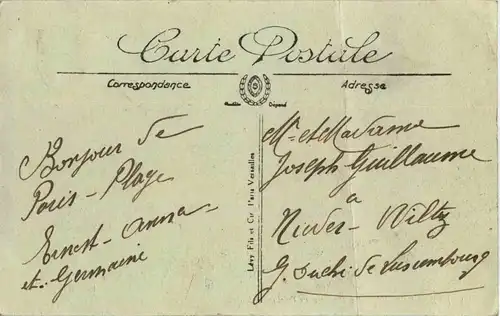 Carte Postale
Correspondance
Adresse
Modèle Déposé
Bonjour de
Paris-Plage
Ernest - Anna
et Germaine
Lévy Fils et Cie Paris Versailles
Mr et Madame
Joseph Guillaume
à
Nieder-Wiltz
G. Duché de Luxembourg